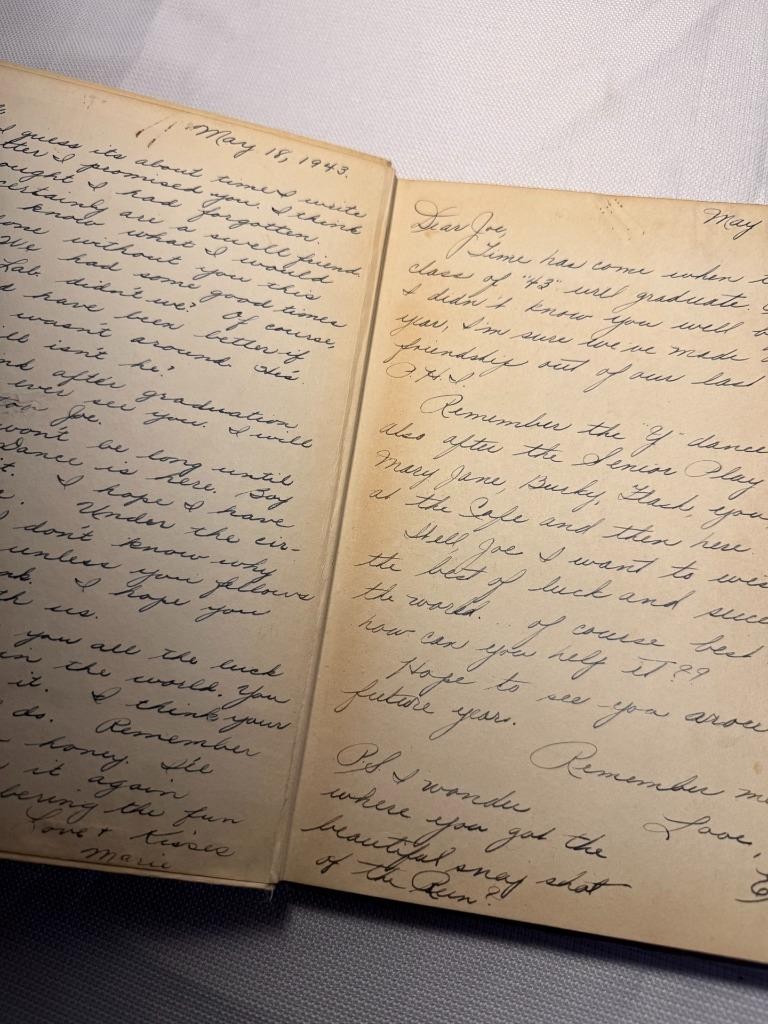 May 18, 1943.
I guess its about time I write
I promised you. I think
I had forgotten.
certainly are a swell friend.
know what I would
without you this
We had some good times
Lab didn't we? Of course,
have been better if
wasn't around. He's
isn't he?
after graduation
ever see you. I will
Joe.
won't be long until
Dance is here. Boy
it. I hope I have
Under the cir-
I don't know why
unless you fellows
I hope you
us.
you all the luck
in the world. You
it. I think your
do. Remember
honey. I'le
it again
the fun
Love & Kisses
Marie
May
Dear Joe,
Time has come when
class of "43" will graduate.
I didn't know you well
year, I'm sure we've made
friendship out of our last
P.H.S.
Remember the "Y" dance
also after the Senior Play
Mary Jane, Bucky, Flash, you
at the Cafe and then here.
Well, Joe I want to
the best of luck and
the world... of course best
how can you help it??
Hope to see you
future years.
Remember
Love,
P.S. I wonder
where you got the
beautiful snap shot
of the Run?